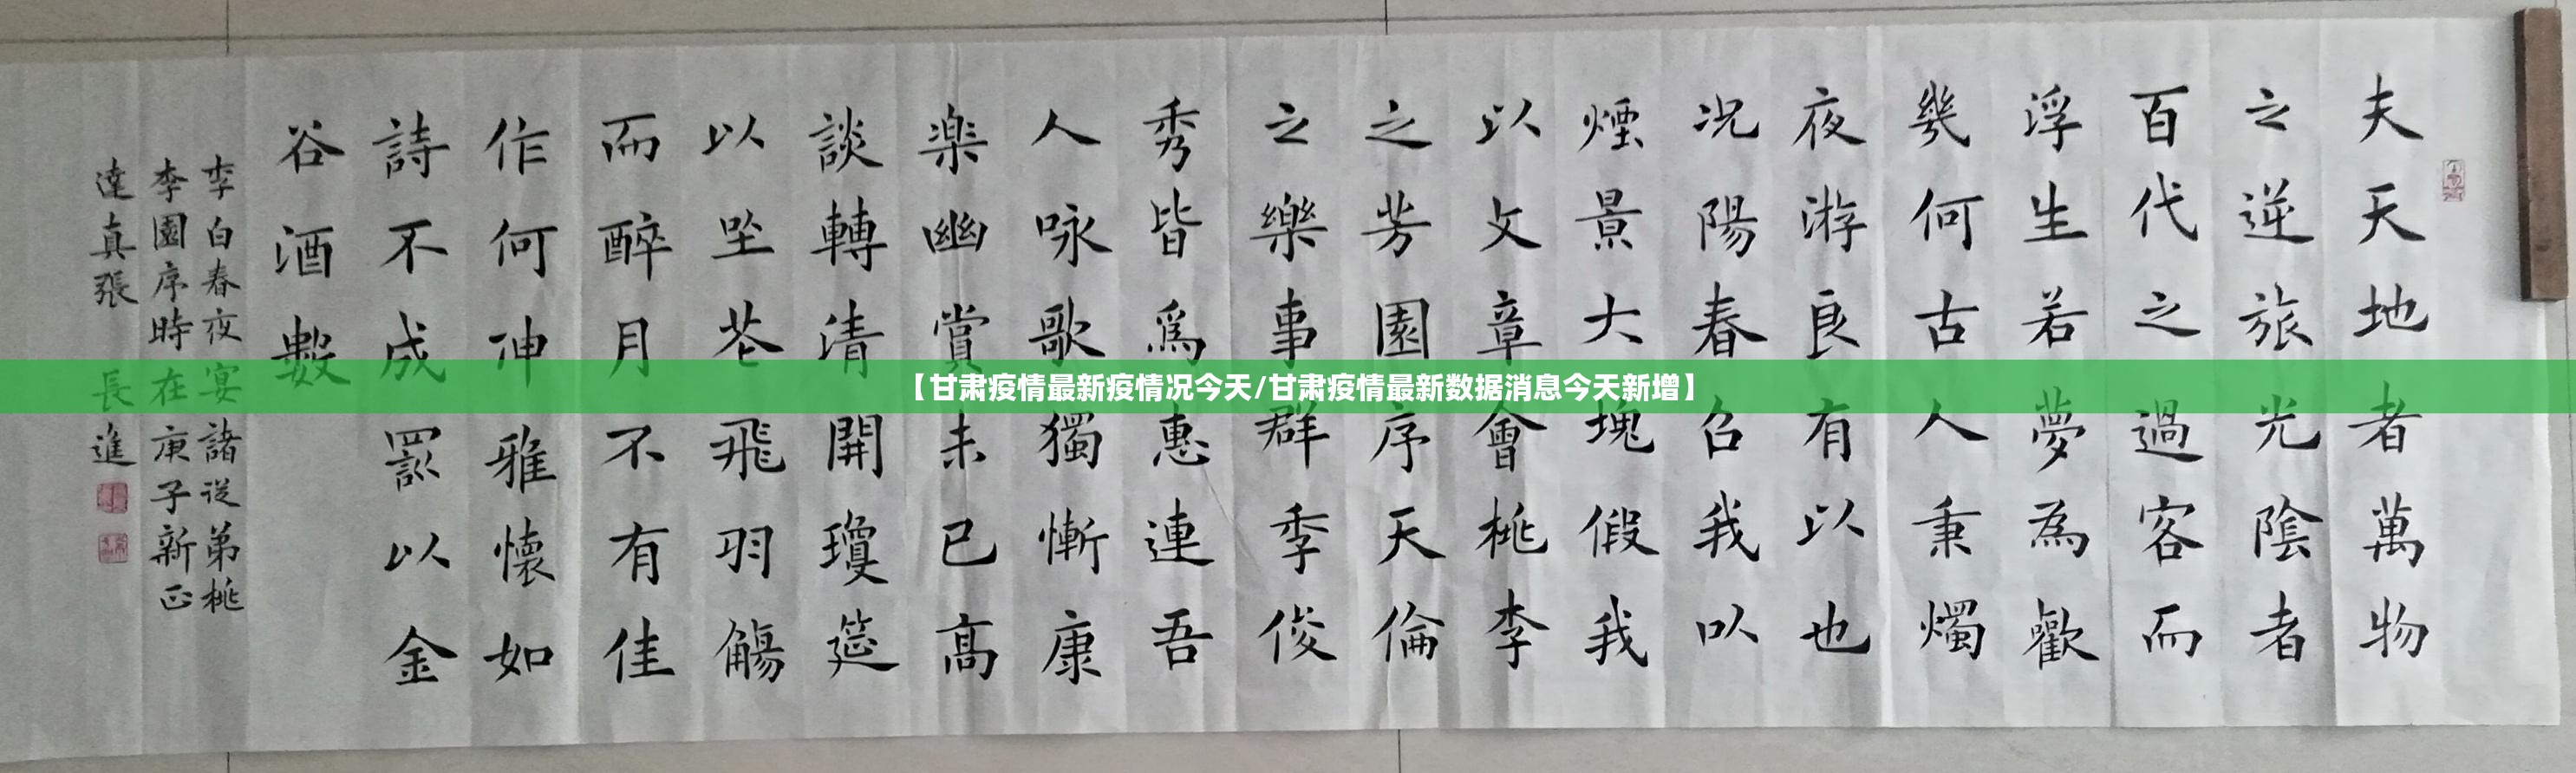 夫天地者萬物
之逆旅光陰者
百代之過客而
浮生若夢為歡
幾何古人秉燭
夜游良有以也
况陽春召我以
煙景大塊假我
以文章會桃李
之芳園序天倫
之樂事群季俊
秀皆爲惠連吾
人咏歌獨慚康
楽幽賞未已髙
談轉清開瓊筵
以坐花飛羽觴
而醉月不有佳
作何伸雅懷如
詩不成罰以金
谷酒數
李白春夜宴諸従弟桃
李園序時在庚子新正
達真張長進
【甘肃疫情最新疫情况今天/甘肃疫情最新数据消息今天新增】